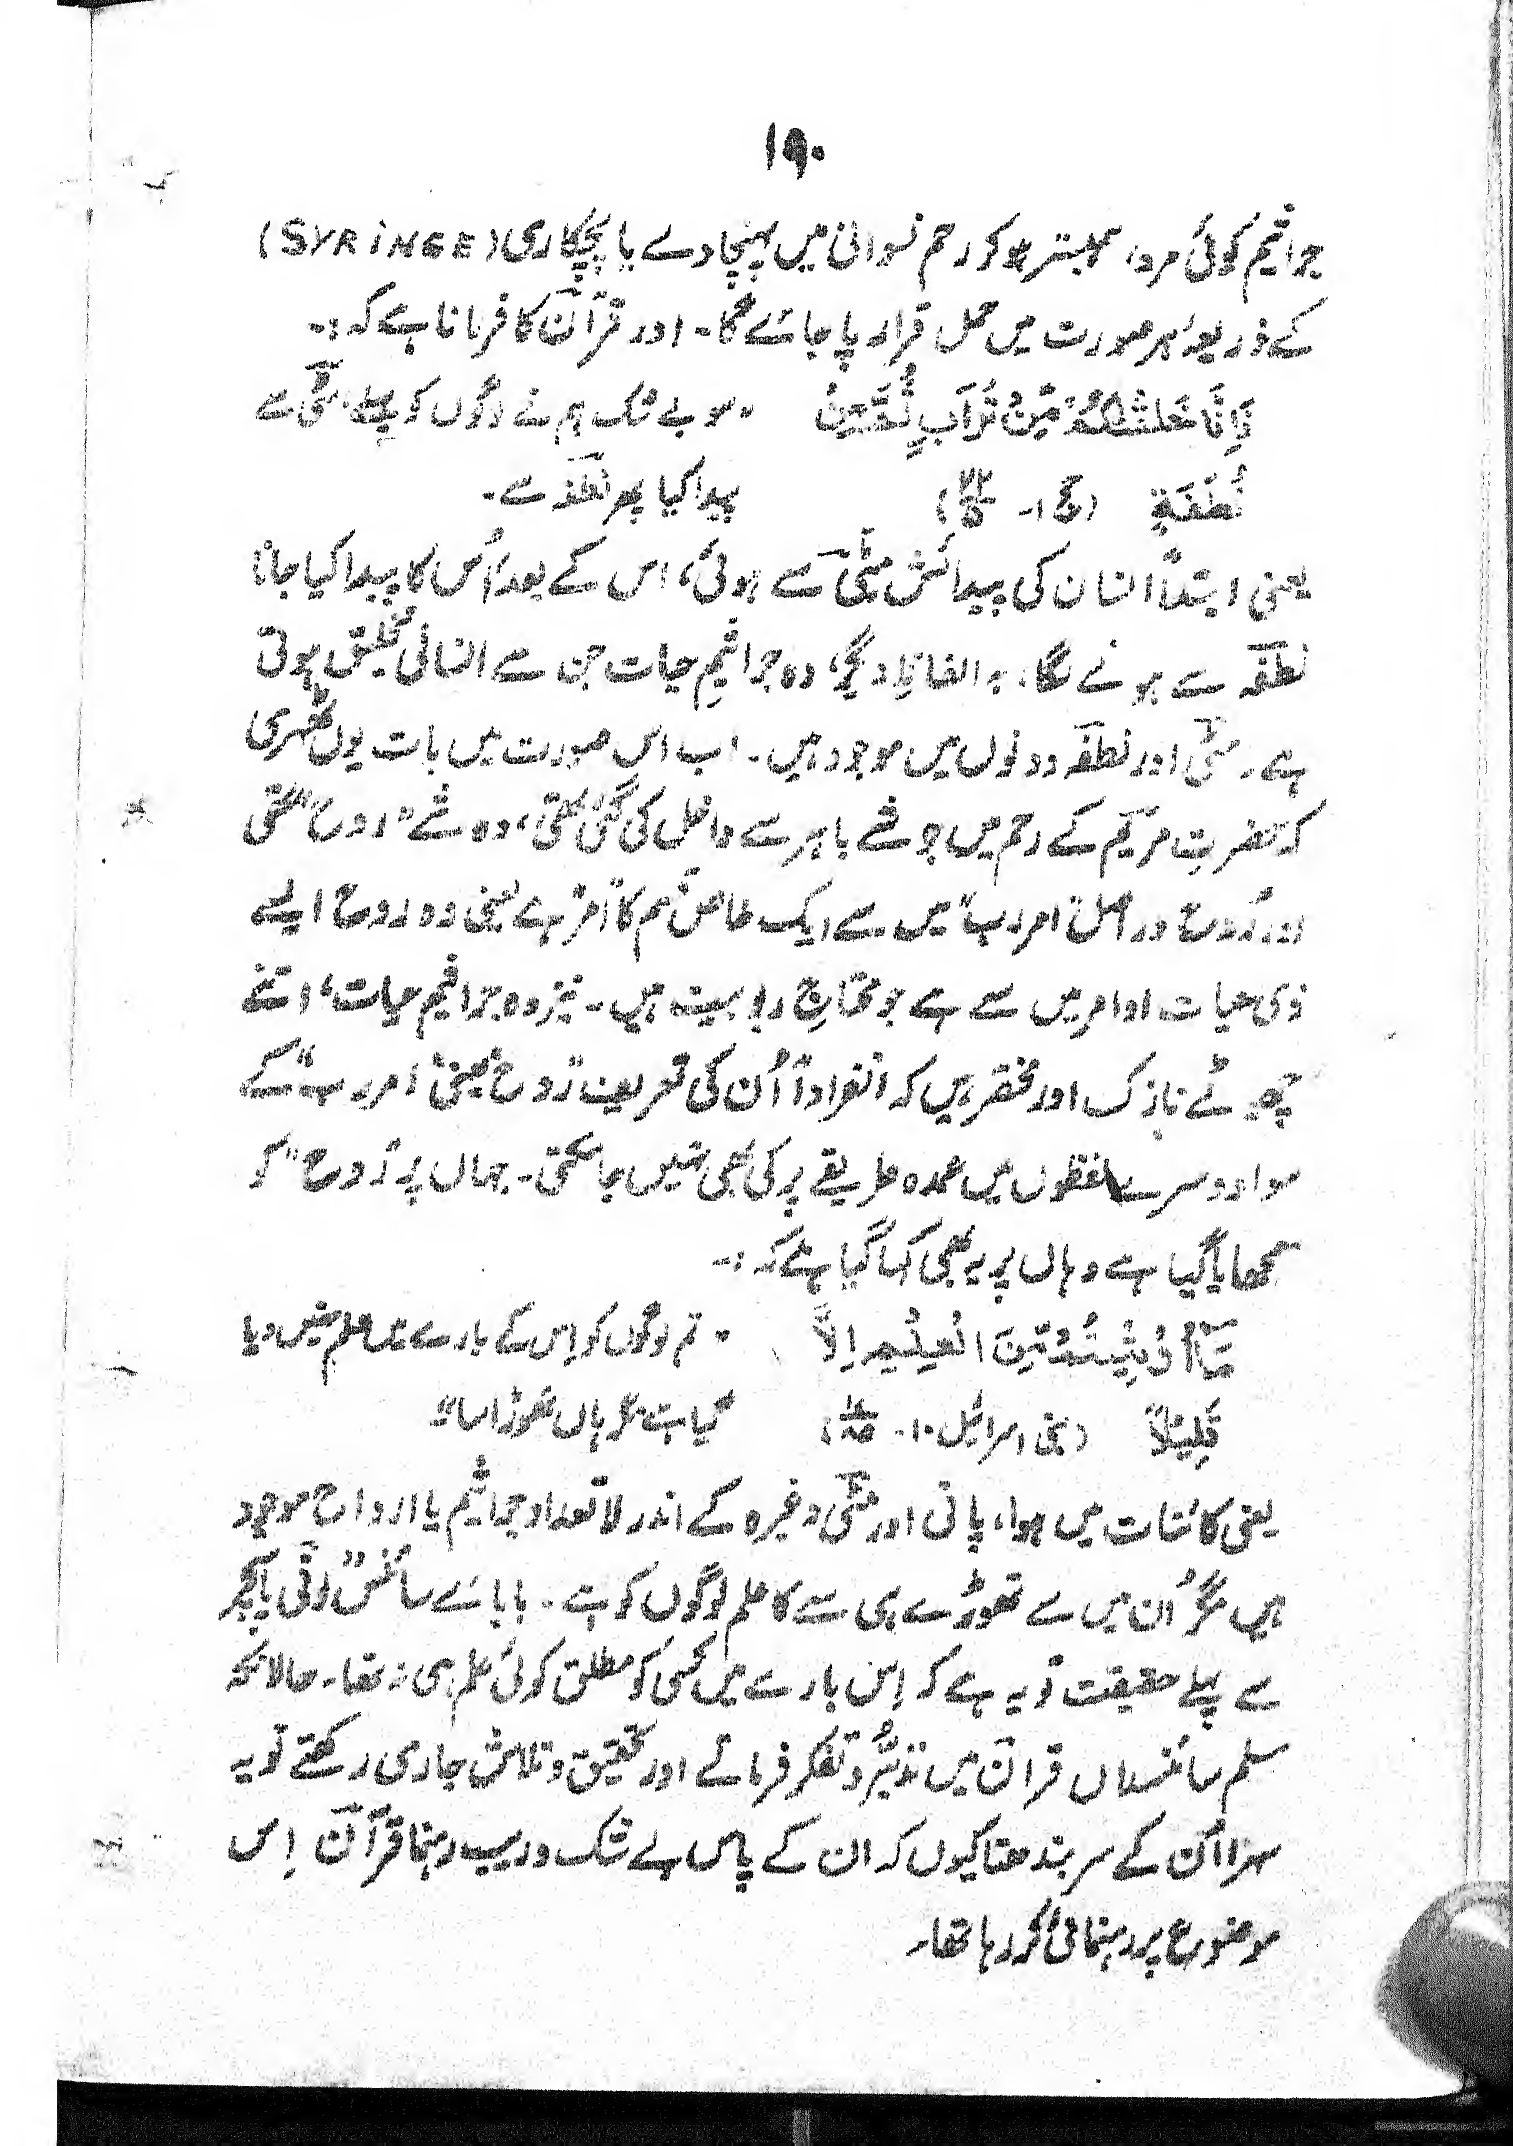 ۱۹۰
جراثیم کوئی مرد، ہمبستر ہو کر رحم نسوانی میں پہنچا دے یا پچکاری (SYRiNGE)
کے ذریعہ ہر صورت میں حمل قرار پا جائے گا۔ اور قرآن کا فرمانا ہے کہ :۔
فَاِنَّا خَلَقْنٰکُمْ مِّنْ تُرَابٍ ثُمَّ مِنْ
نُّطْفَةٍ (حج ۱۔
۔ سو بے شک ہم نے لوگوں کو پہلے مٹّی سے
پیدا کیا پھر نطفہ سے ۔
یعنی ابتدًا انسان کی پیدائش مٹّی سے ہوئی، اس کے بعد اُس کا پیدا کیا جانا
نطفہ سے ہونے لگا۔ بہ الفاظِ دیگر، وہ جراثیمِ حیات جن سے انسانی تخلیق ہوتی
ہے۔ مٹّی اور نطفہ دونوں میں موجود ہیں۔ اب اس صورت میں بات یوں ٹھہری
کہ حضرت مریم کے رحم میں جو شے باہر سے داخل کی گئی تھی، وہ شے "روح" تھی
اور رُوح در اصل "امر رب" میں سے ایک خاص قسم کا امر ہے یعنی وہ روح ایسے
ذی حیات اوامر میں سے ہے جو محتاجِ ربوبیت ہیں۔ نیز وہ جراثیم حیات، اتنے
چھوٹے نازک اور مختصر ہیں کہ انفراداً اُن کی تعریف "رُوح یعنی امر رب" کے
سوا دوسرے لفظوں میں عمدہ طریقے پر کی بھی نہیں جا سکتی۔ جہاں پر "رُوح" کو
سمجھایا گیا ہے وہاں پر یہ بھی کہا گیا ہے کہ :۔
مَآ اُوْتِیْتُمْ مِّنَ الْعِلْمِ اِلَّا
قَلِیْلًا (بنی اسرائیل ۱۰۔
۔ تم لوگوں کو اِس کے بارے میں علم نہیں دیا
گیا ہے مگر ہاں تھوڑا سا"۔
یعنی کائنات میں ہوا، پانی اور مٹّی وغیرہ کے اندر لا تعداد جراثیم یا ارواح موجود
ہیں مگر اُن میں سے تھوڑے ہی سے کا علم لوگوں کو ہے۔ بابائے سائنس "لوئی پاسچر
سے پہلے حقیقت تو یہ ہے کہ اِس بارے میں کسی کو مطلق کوئی علم ہی نہ تھا۔ حالانکہ
مسلم سائنسداں قرآن میں تدبُّر و تفکر فرماتے اور تحقیق و تلاش جاری رکھتے تو یہ
سہرا اُن کے سر بندھتا کیوں کہ ان کے پاس بے شک و ریب رہنما قرآن اِس
موضوع پر رہنمائی کر رہا تھا۔